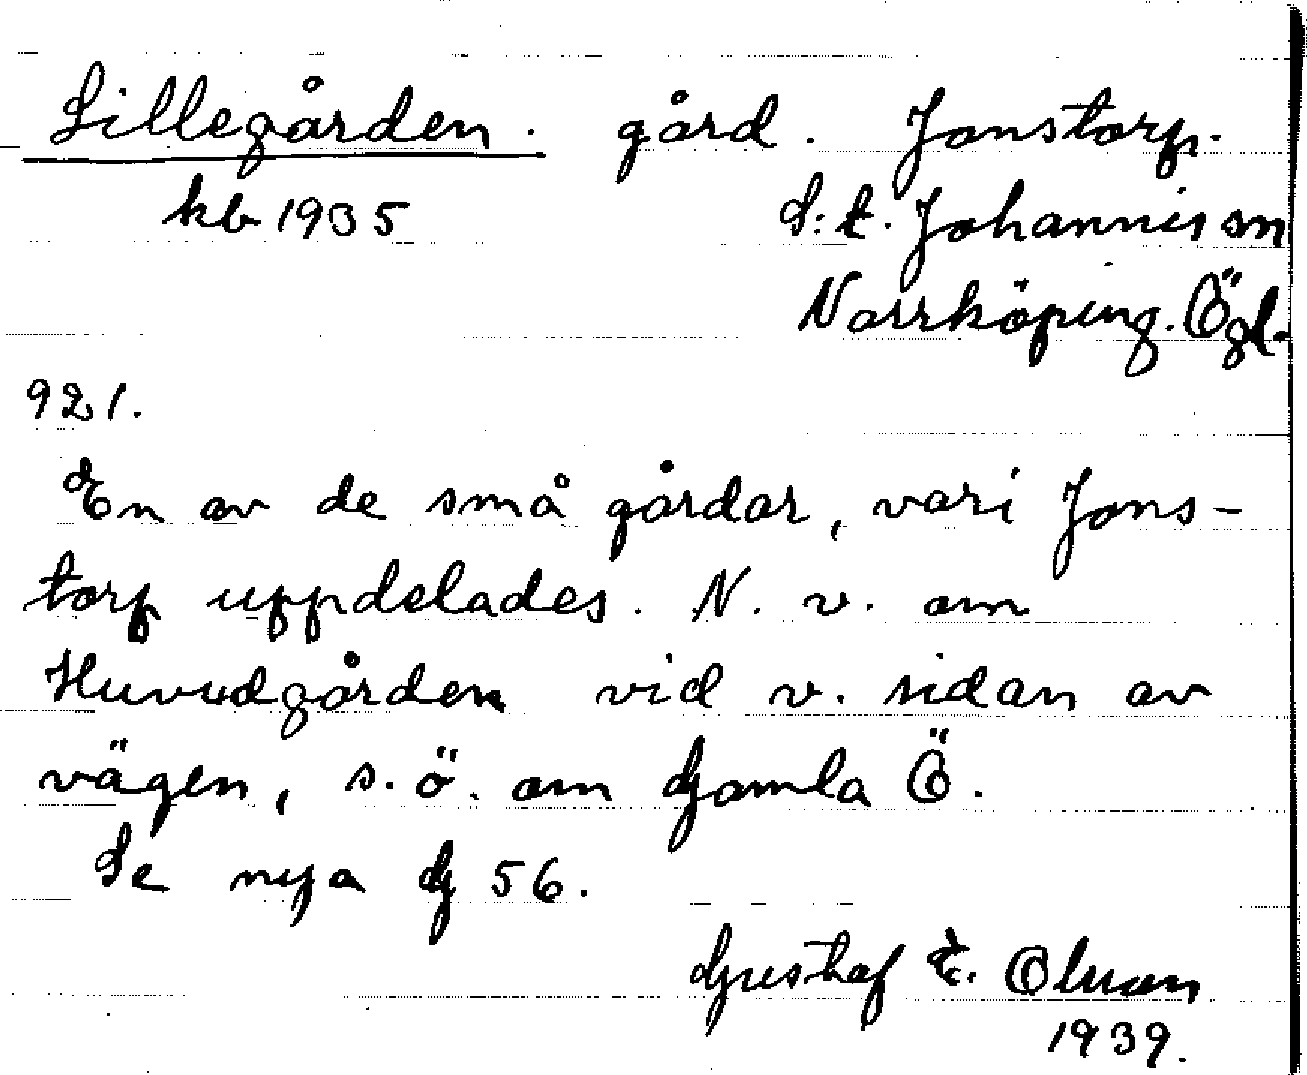 Lillegården. gård. Jonstorp.
kb 1935 S:t. Johannis sn
Norrköping. Ögl.
921.
En av de små gårdar, vari Jons-
torp uppdelades. N. v. om
Huvudgården vid v. sidan av
vägen, s. ö. om Gamla Ö.
Se nya G 56.
Gustaf E. Olsson
1939.